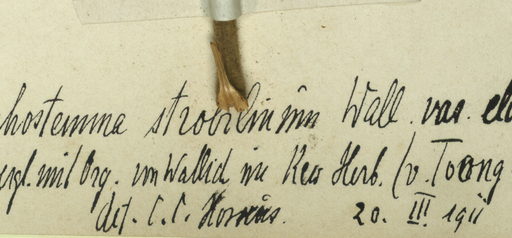 hostemma strobilinum Wall. var. ela
vgl. mit Org. von Wallich im Kew Herb. (v. Toong
det. C. C. Hosseus. 20. III. 1911